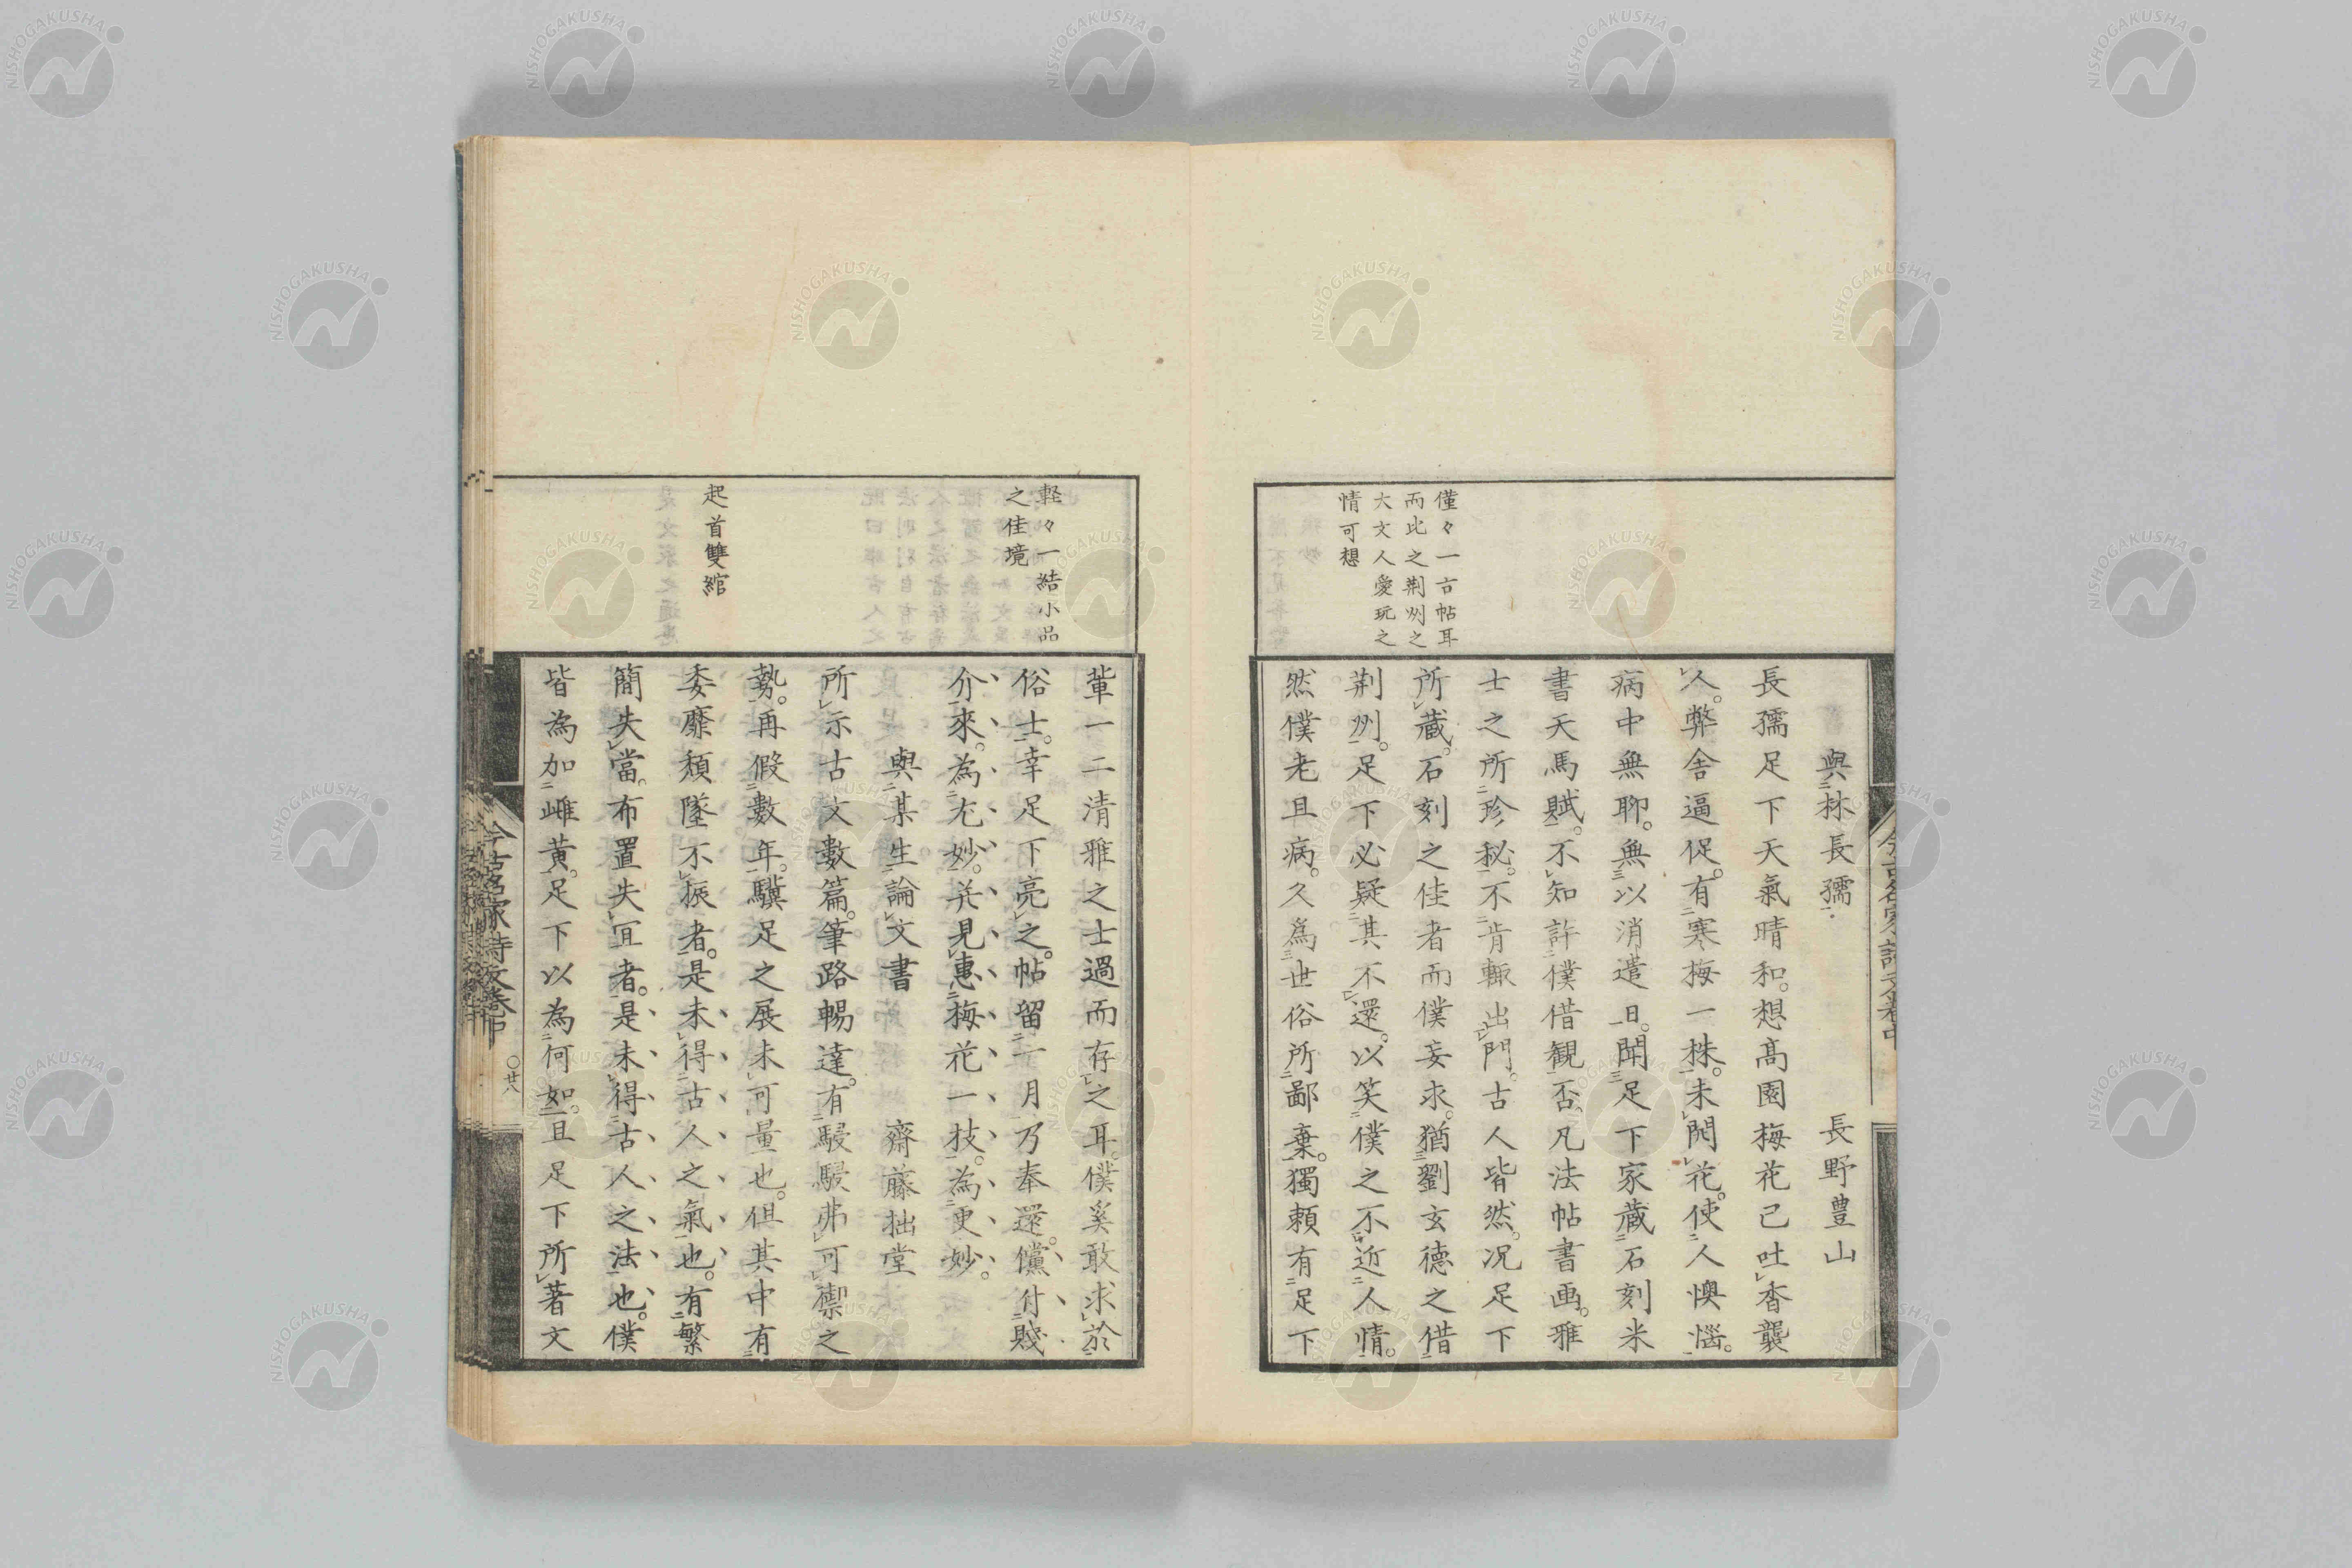 與林長孺　長野豊山
長孺足下天氣晴和。想髙園梅花已吐香襲
人。弊舍逼促。有寒梅一株。未開花。使人懊惱。
病中無聊。無以消遣日。聞足下家藏石刻米
書天馬賦。不知許僕借観否。凡法帖書画。雅
士之所珍秘。不肯輙出門。古人皆然。况足下
所藏。石刻之佳者而僕妄求。猶劉玄德之借
荆州。足下必疑其不還。以笑僕之不近人情。
然僕老且病。久為世俗所鄙棄。獨頼有足下
僅々一古帖耳
而比之荆州之
大文人愛玩之
情可想
今古名家詩文卷中
輩一二清雅之士過而存之耳。僕奚敢求於
俗士。幸足下亮之。帖留一月乃奉還。儻付賤
介來。為尤妙。并見惠梅花一枝。為更妙。
與某生論文書　齋藤拙堂
所示古文數篇。筆路暢達。有駸駸弗可禦之
勢。再假數年。驥足之展未可量也。但其中有
委靡頽墜不振者。是未得古人之氣也。有繁
簡失當。布置失宜者。是未得古人之法也。僕
皆為加雌黄。足下以為何如。且足下所著文
軽々一結小品
之佳境
起首雙綰
今古名家詩文卷中
〇廿八
NISHOGAKUSHA